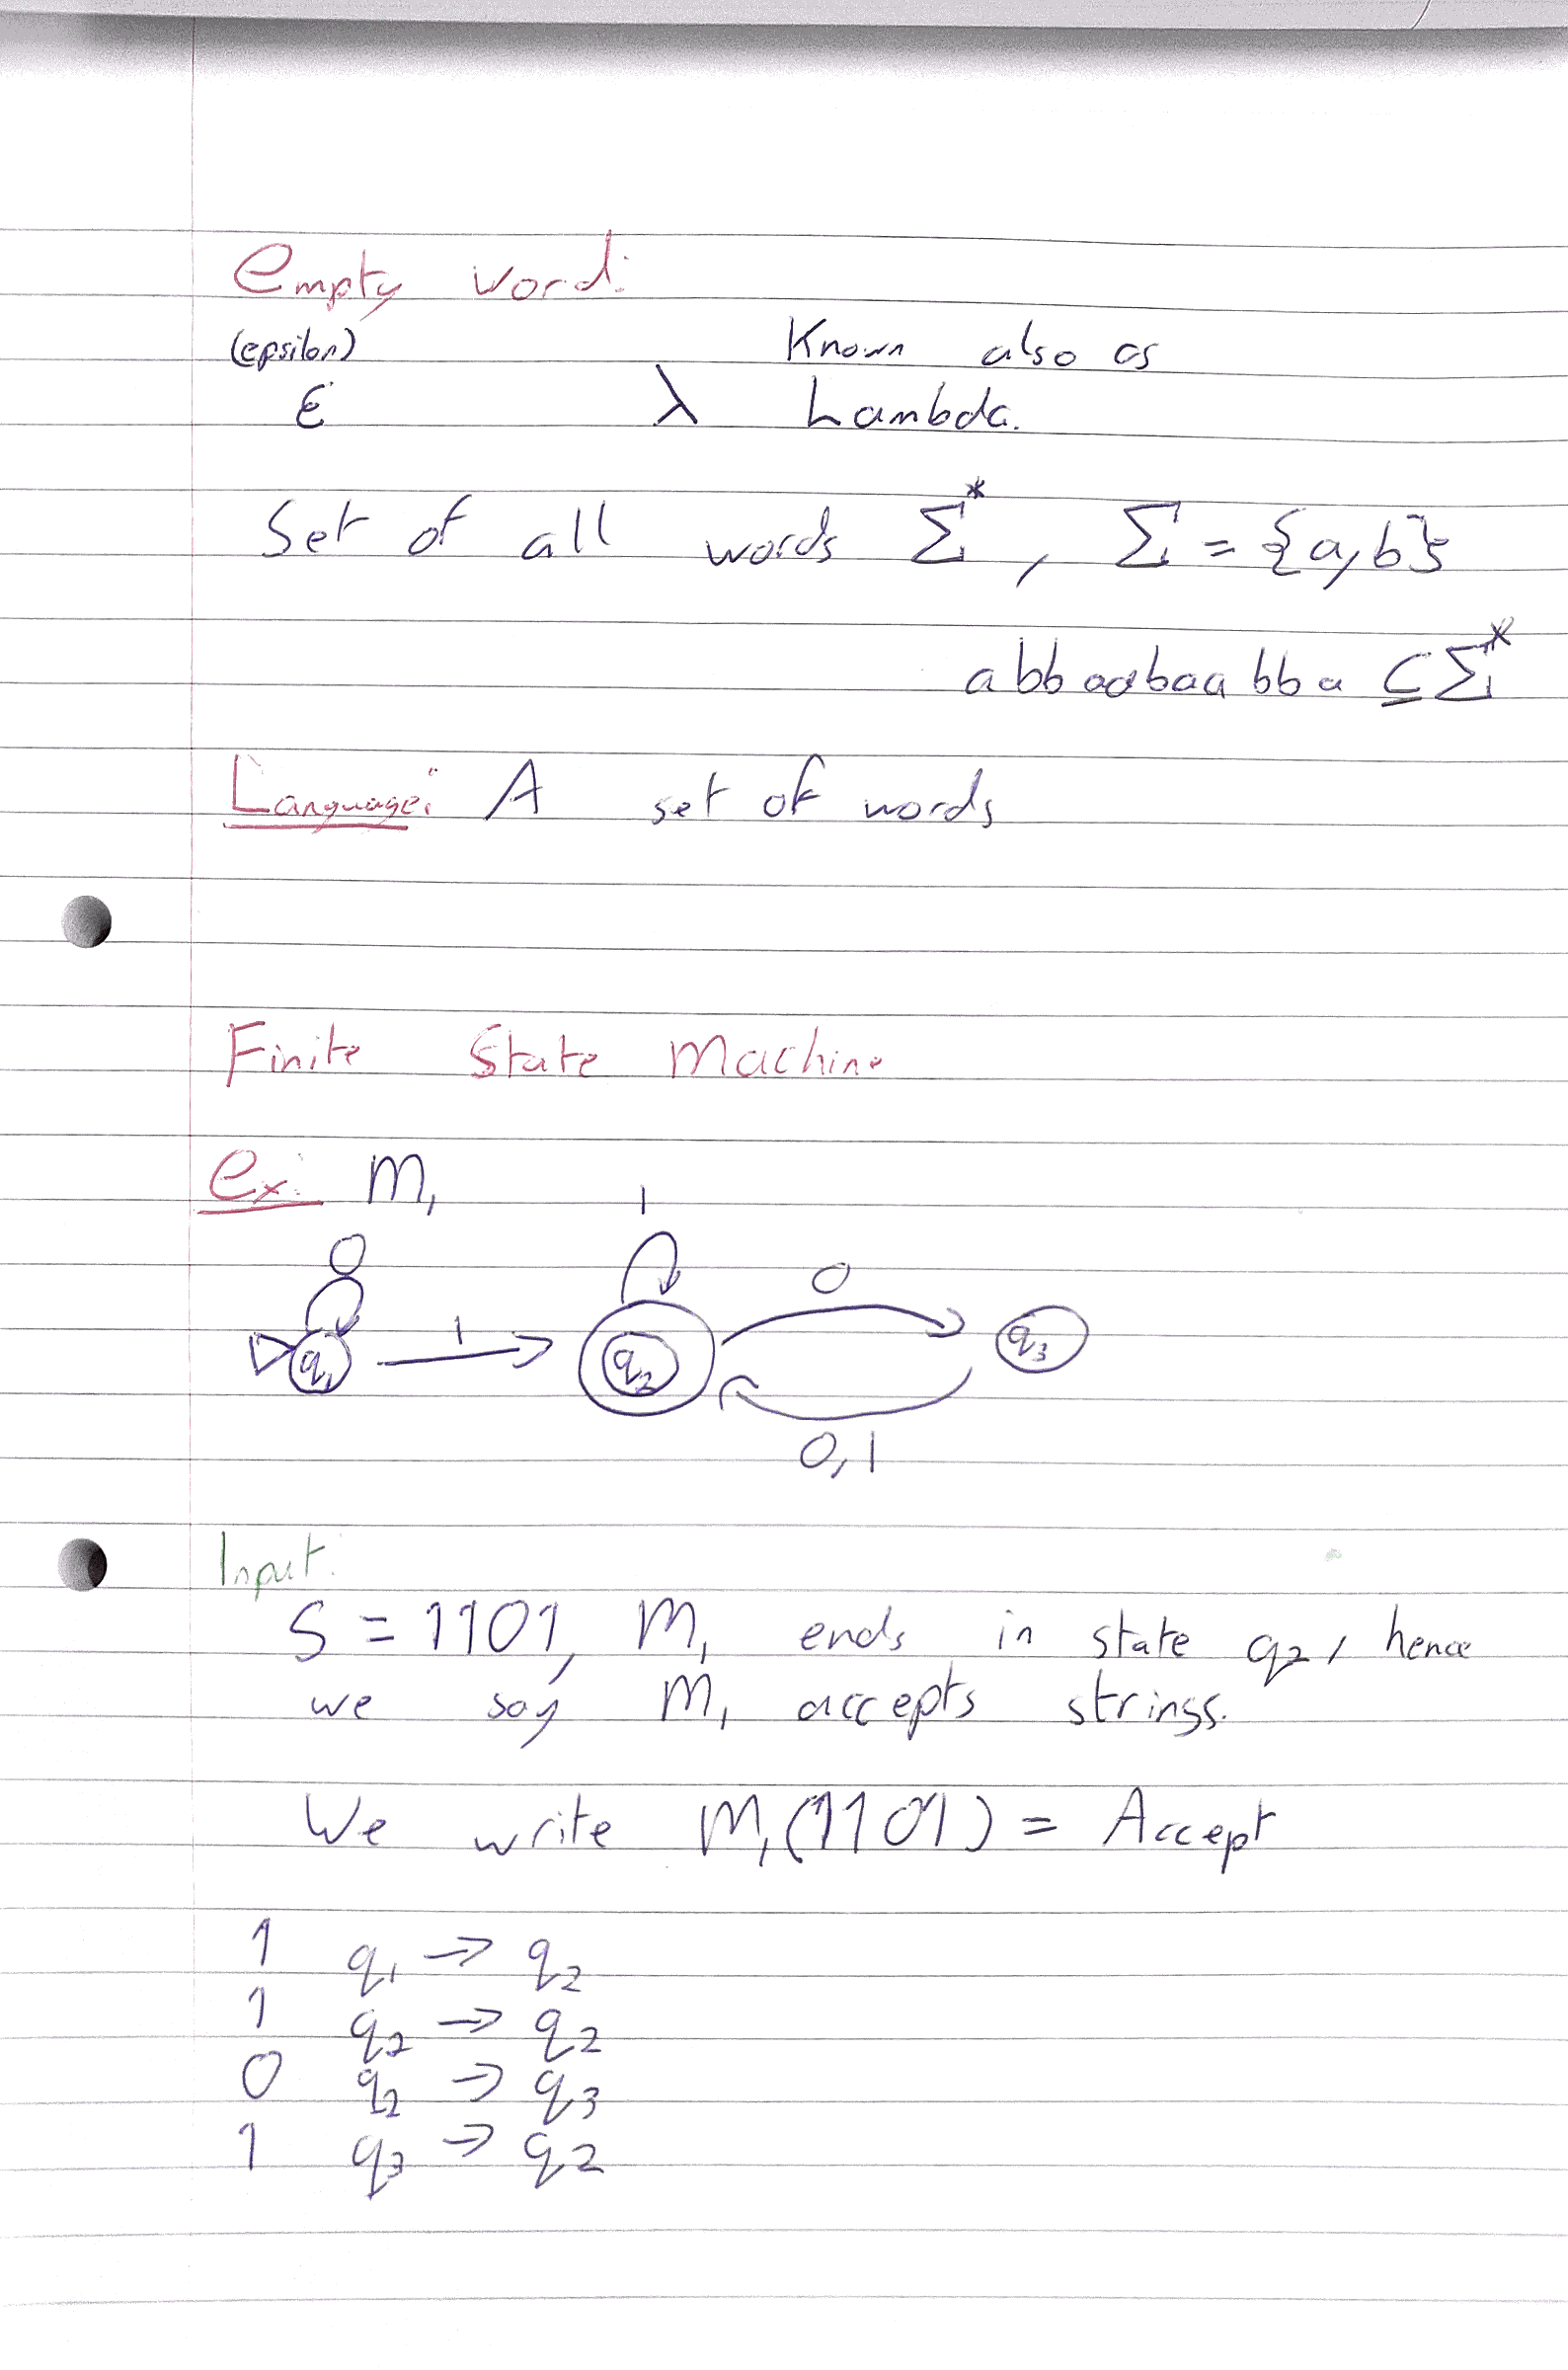 Empty word:
(epsilon) Known also as
ε λ Lambda.
Set of all words Σ*, Σ = {a,b}
abbaabaabba ⊆ Σ*
Language: A set of words
Finite State Machine
ex: M₁
1
0
0
1
q₁ q₂ q₃
0,1
Input:
S = 1101, M₁ ends in state q₂, hence
we say M₁ accepts strings.
We write M₁(1101) = Accept
1 q₁ → q₂
1 q₂ → q₂
0 q₂ → q₃
1 q₃ → q₂